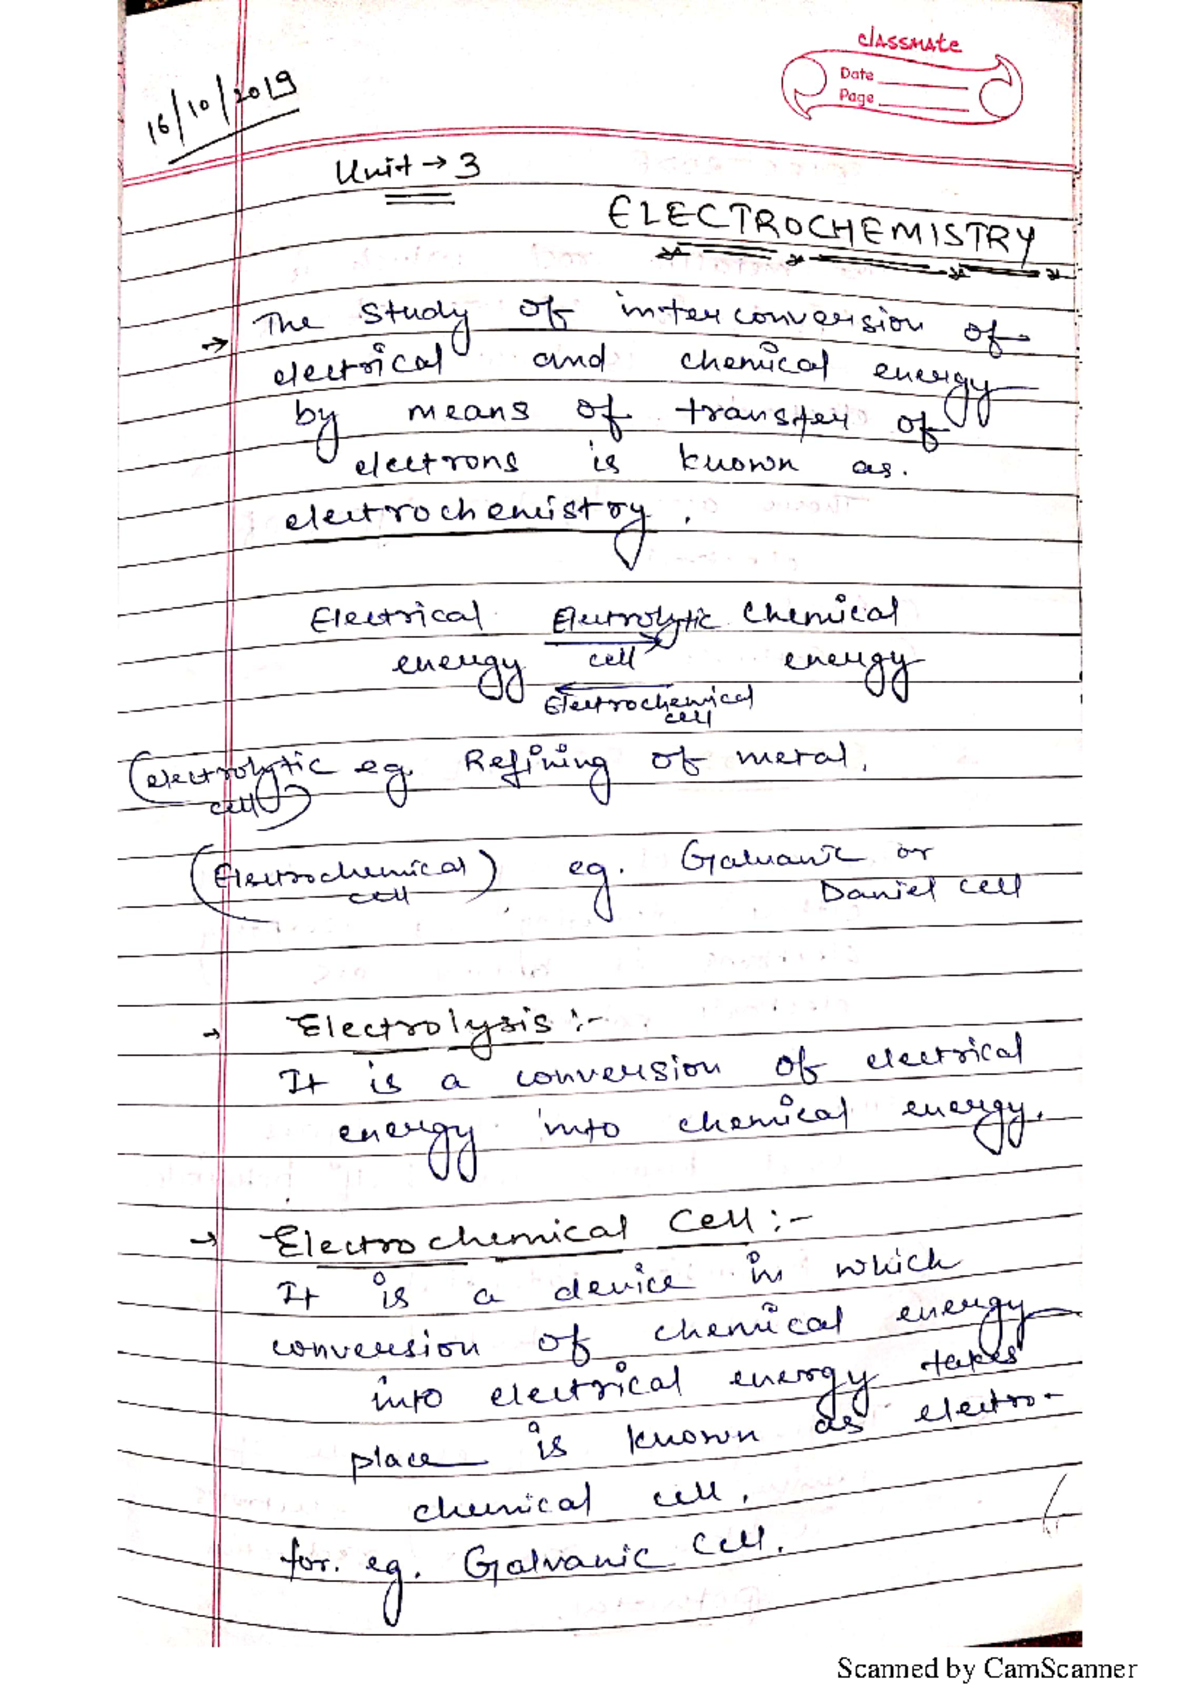 classmate
Date
Page
16/10/2019
Unit → 3
ELECTROCHEMISTRY
→ The study of interconversion of
electrical and chemical energy
by means of transfer of
electrons is known as.
electrochemistry.
Electrical Electrolytic Chemical
energy cell energy
Electrochemical
cell
(electrolytic eg. Refining of metal.
cell)
(Electrochemical) eg. Galvanic or
cell Daniel cell
→ Electrolysis :-
It is a conversion of electrical
energy into chemical energy.
→ Electrochemical Cell :-
It is a device in which
conversion of chemical energy
into electrical energy takes
place is known as electro-
chemical cell.
for. eg. Galvanic cell.
Scanned by CamScanner